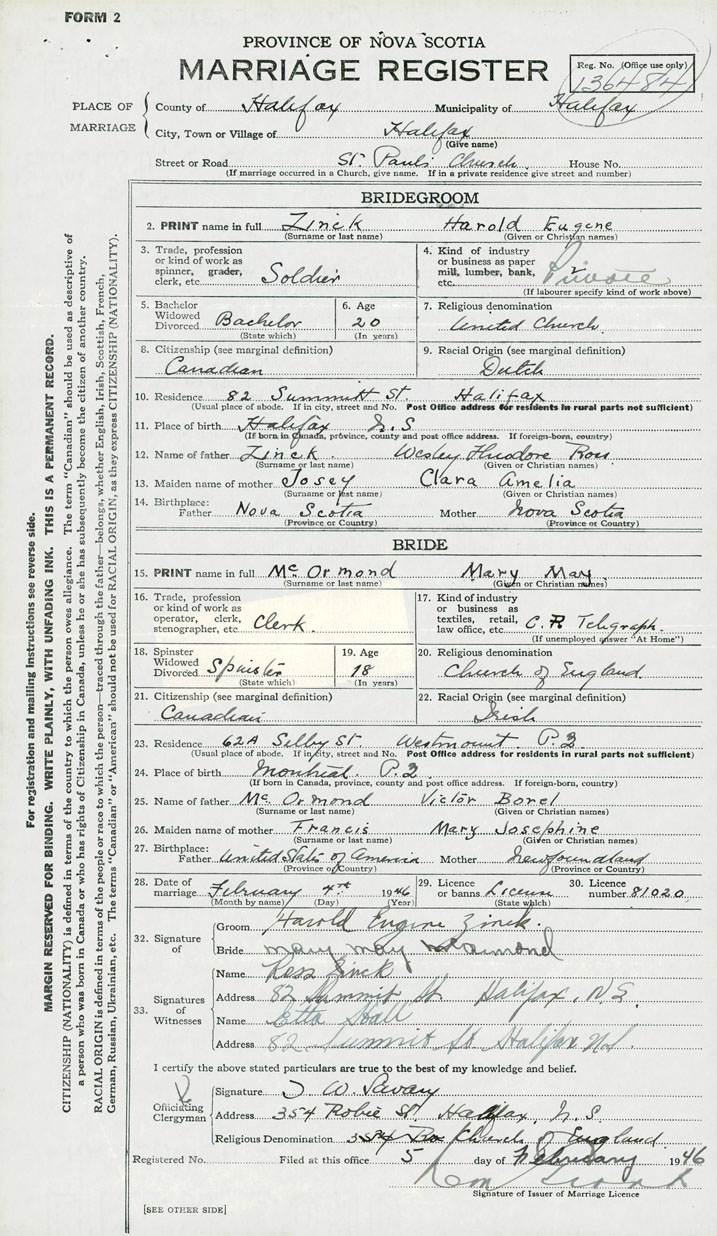 FORM 2
PROVINCE OF NOVA SCOTIA
MARRIAGE REGISTER
Reg. No. (Office use only)
136484
PLACE OF MARRIAGE
County of Halifax Municipality of Halifax
City, Town or Village of Halifax
(Give name)
Street or Road St. Pauls Church House No.
(If marriage occurred in a Church, give name. If in a private residence give street and number)
BRIDEGROOM
2. PRINT name in full Zinck Harold Eugene
(Surname or last name) (Given or Christian names)
3. Trade, profession or kind of work as spinner, grader, clerk, etc. Soldier
4. Kind of industry or business as paper mill, lumber, bank, etc. Private
(If labourer specify kind of work above)
5. Bachelor Widowed Divorced Bachelor
(State which)
6. Age 20
(In years)
7. Religious denomination
United Church
8. Citizenship (see marginal definition)
Canadian
9. Racial Origin (see marginal definition)
Dutch
10. Residence 82 Summitt St. Halifax
(Usual place of abode. If in city, street and No. Post Office address for residents in rural parts not sufficient)
11. Place of birth Halifax N.S
(If born in Canada, province, county and post office address. If foreign-born, country)
12. Name of father Zinck Wesley Theodore Ross
(Surname or last name) (Given or Christian names)
13. Maiden name of mother Josey Clara Amelia
(Surname or last name) (Given or Christian names)
14. Birthplace:
Father Nova Scotia Mother Nova Scotia
(Province or Country) (Province or Country)
BRIDE
15. PRINT name in full Mc Ormond Mary May
(Surname or last name) (Given or Christian names)
16. Trade, profession or kind of work as operator, clerk, stenographer, etc Clerk.
17. Kind of industry or business as textiles, retail, law office, etc. C.P. Telegraph.
(If unemployed answer "At Home")
18. Spinster Widowed Divorced Spinster
(State which)
19. Age 18
(In years)
20. Religious denomination
Church of England
21. Citizenship (see marginal definition)
Canadian
22. Racial Origin (see marginal definition)
Irish
23. Residence 62A Selby St. Westmount P.Q
(Usual place of abode. If in city, street and No. Post Office address for residents in rural parts not sufficient)
24. Place of birth Montreal. P.Q
(If born in Canada, province, county and post office address. If foreign-born, country)
25. Name of father Mc Ormond Victor Borel
(Surname or last name) (Given or Christian names)
26. Maiden name of mother Francis Mary Josephine
(Surname or last name) (Given or Christian names)
27. Birthplace:
Father United States of America Mother Newfoundland
(Province or Country) (Province or Country)
28. Date of marriage February 4th 1946
(Month by name) (Day) (Year)
29. Licence or banns License
(State which)
30. Licence number 81020
32. Signature of
Groom Harold Eugene Zinck.
Bride Mary May McOrmond
33. Signatures of Witnesses
Name Ross Zinck
Address 82 Summit St Halifax, N.S.
Name Etta
Address 82 Summit St Halifax N.S.
I certify the above stated particulars are true to the best of my knowledge and belief.
Officiating Clergyman
Signature W. Savary
Address 354 Robie St. Halifax, N.S.
Religious Denomination Church of England
Registered No. Filed at this office 5 day of February 1946
Signature of Issuer of Marriage Licence
[SEE OTHER SIDE]
For registration and mailing instructions see reverse side.
MARGIN RESERVED FOR BINDING. WRITE PLAINLY, WITH UNFADING INK. THIS IS A PERMANENT RECORD.
CITIZENSHIP (NATIONALITY) is defined in terms of the country to which the person owes allegiance. The term "Canadian" should be used as descriptive of
a person who was born in Canada or who has rights of Citizenship in Canada, unless he or she has subsequently become the citizen of another country.
RACIAL ORIGIN is defined in terms of the people or race to which the person—traced through the father—belongs, whether English, Irish, Scottish, French,
German, Russian, Ukrainian, etc. The terms "Canadian" or "American" should not be used for RACIAL ORIGIN, as they express CITIZENSHIP (NATIONALITY).